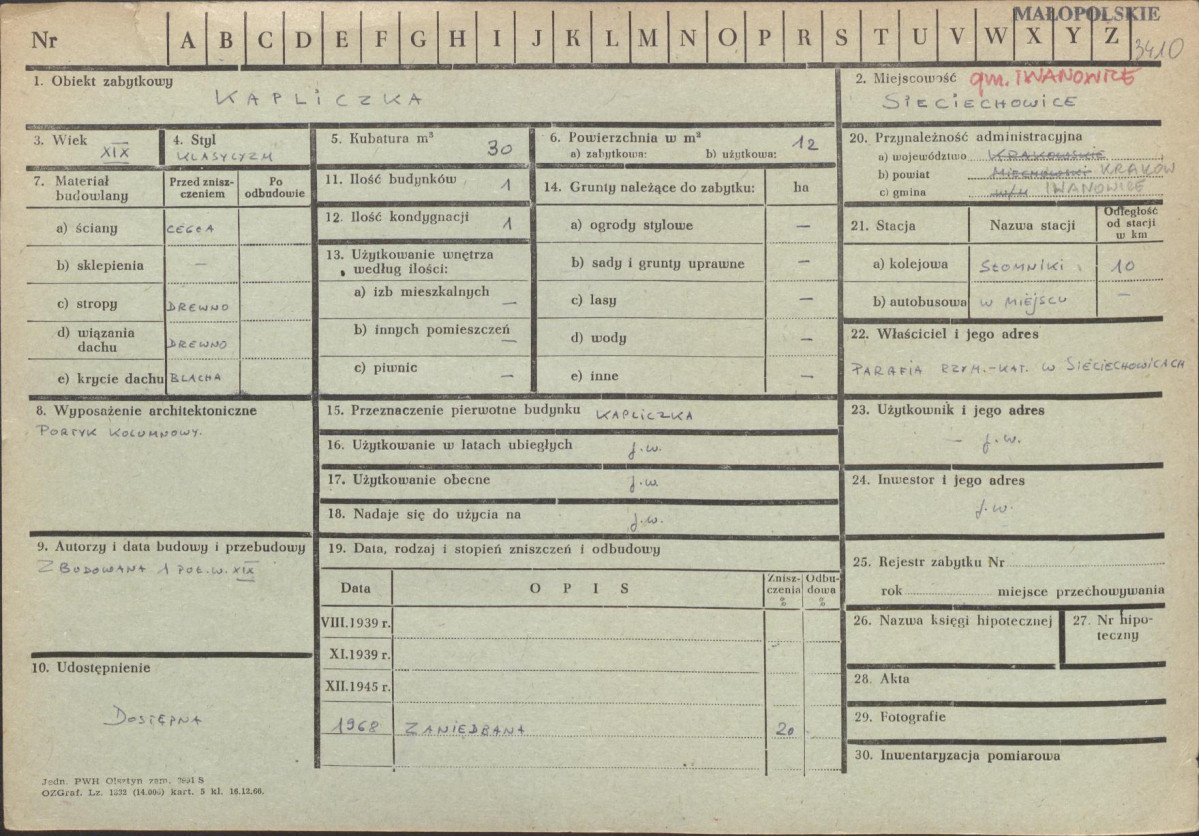 MAŁOPOLSKIE
Nr A B C D E F G H I J K L M N O P R S T U V W X Y Z 3410
1. Obiekt zabytkowy
KAPLICZKA
2. Miejscowość gm. IWANOWICE
SIECIECHOWICE
3. Wiek
XIX
4. Styl
KLASYCYZM
5. Kubatura m³ 30
6. Powierzchnia w m² 12
a) zabytkowa: b) użytkowa:
7. Materiał budowlany
Przed znisz-
czeniem
Po
odbudowie
a) ściany CEGŁA
b) sklepienia —
c) stropy DREWNO
d) wiązania
dachu DREWNO
e) krycie dachu BLACHA
8. Wyposażenie architektoniczne
PORTYK KOLUMNOWY.
9. Autorzy i data budowy i przebudowy
ZBUDOWANA 1 POŁ. W. XIX
10. Udostępnienie
DOSTĘPNA
11. Ilość budynków 1
12. Ilość kondygnacji 1
13. Użytkowanie wnętrza
według ilości:
a) izb mieszkalnych —
b) innych pomieszczeń —
c) piwnic —
14. Grunty należące do zabytku: ha
a) ogrody stylowe —
b) sady i grunty uprawne —
c) lasy —
d) wody —
e) inne —
15. Przeznaczenie pierwotne budynku KAPLICZKA
16. Użytkowanie w latach ubiegłych j.w.
17. Użytkowanie obecne j.w.
18. Nadaje się do użycia na j.w.
19. Data, rodzaj i stopień zniszczeń i odbudowy
Data OPIS Znisz-
czenia
%
Odbu-
dowa
%
VIII.1939 r.
XI.1939 r.
XII.1945 r.
1968 ZANIEDBANA 20
20. Przynależność administracyjna
a) województwo KRAKOWSKIE
b) powiat MIECHOWSKI KRAKÓW
c) gmina w/m IWANOWICE
21. Stacja Nazwa stacji Odległość
od stacji
w km
a) kolejowa SŁOMNIKI 10
b) autobusowa W MIEJSCU —
22. Właściciel i jego adres
PARAFIA RZYM.-KAT. W SIECIECHOWICACH
23. Użytkownik i jego adres
— j.w.
24. Inwestor i jego adres
j.w.
25. Rejestr zabytku Nr
rok miejsce przechowywania
26. Nazwa księgi hipotecznej
27. Nr hipo-
teczny
28. Akta
29. Fotografie
30. Inwentaryzacja pomiarowa
Jedn. PWH Olsztyn zam. S
OZGraf. Lz. 1632 (14.000) kart. 5 kl. 16.12.66.